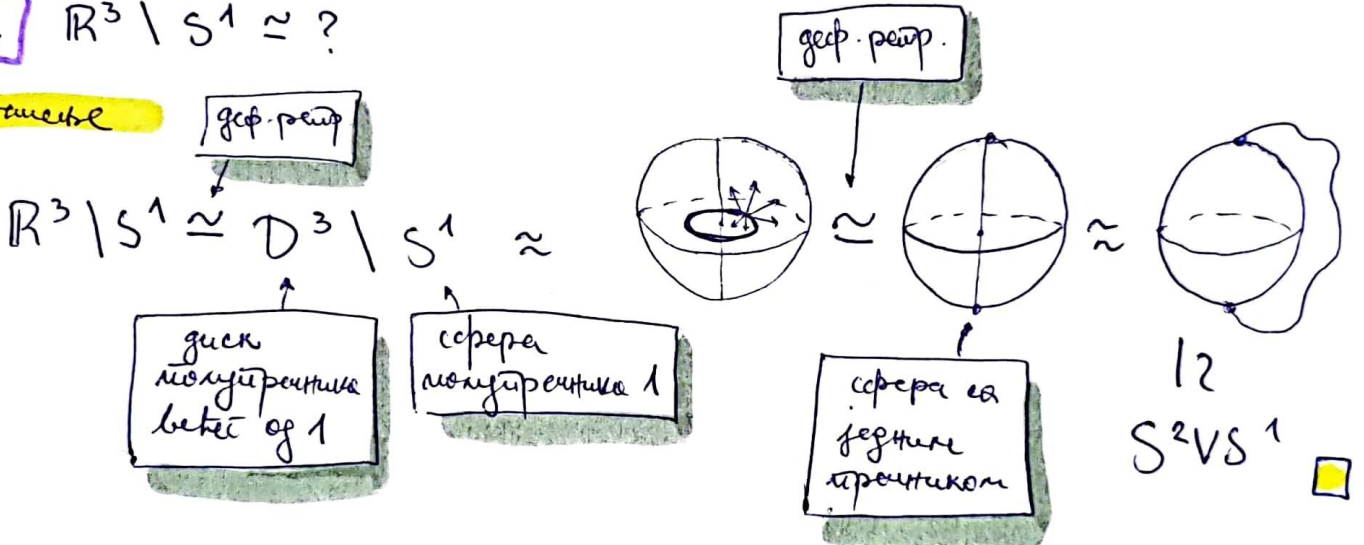 ℝ³ \ S¹ ≃ ?
деф. ретр.
деф. ретр
ℝ³ \ S¹ ≃ D³ \ S¹ ≈ ≃ ≈
диск
полупречника
већег од 1
сфера
полупречника 1
сфера са
једним
пречником
≃
S² ∨ S¹